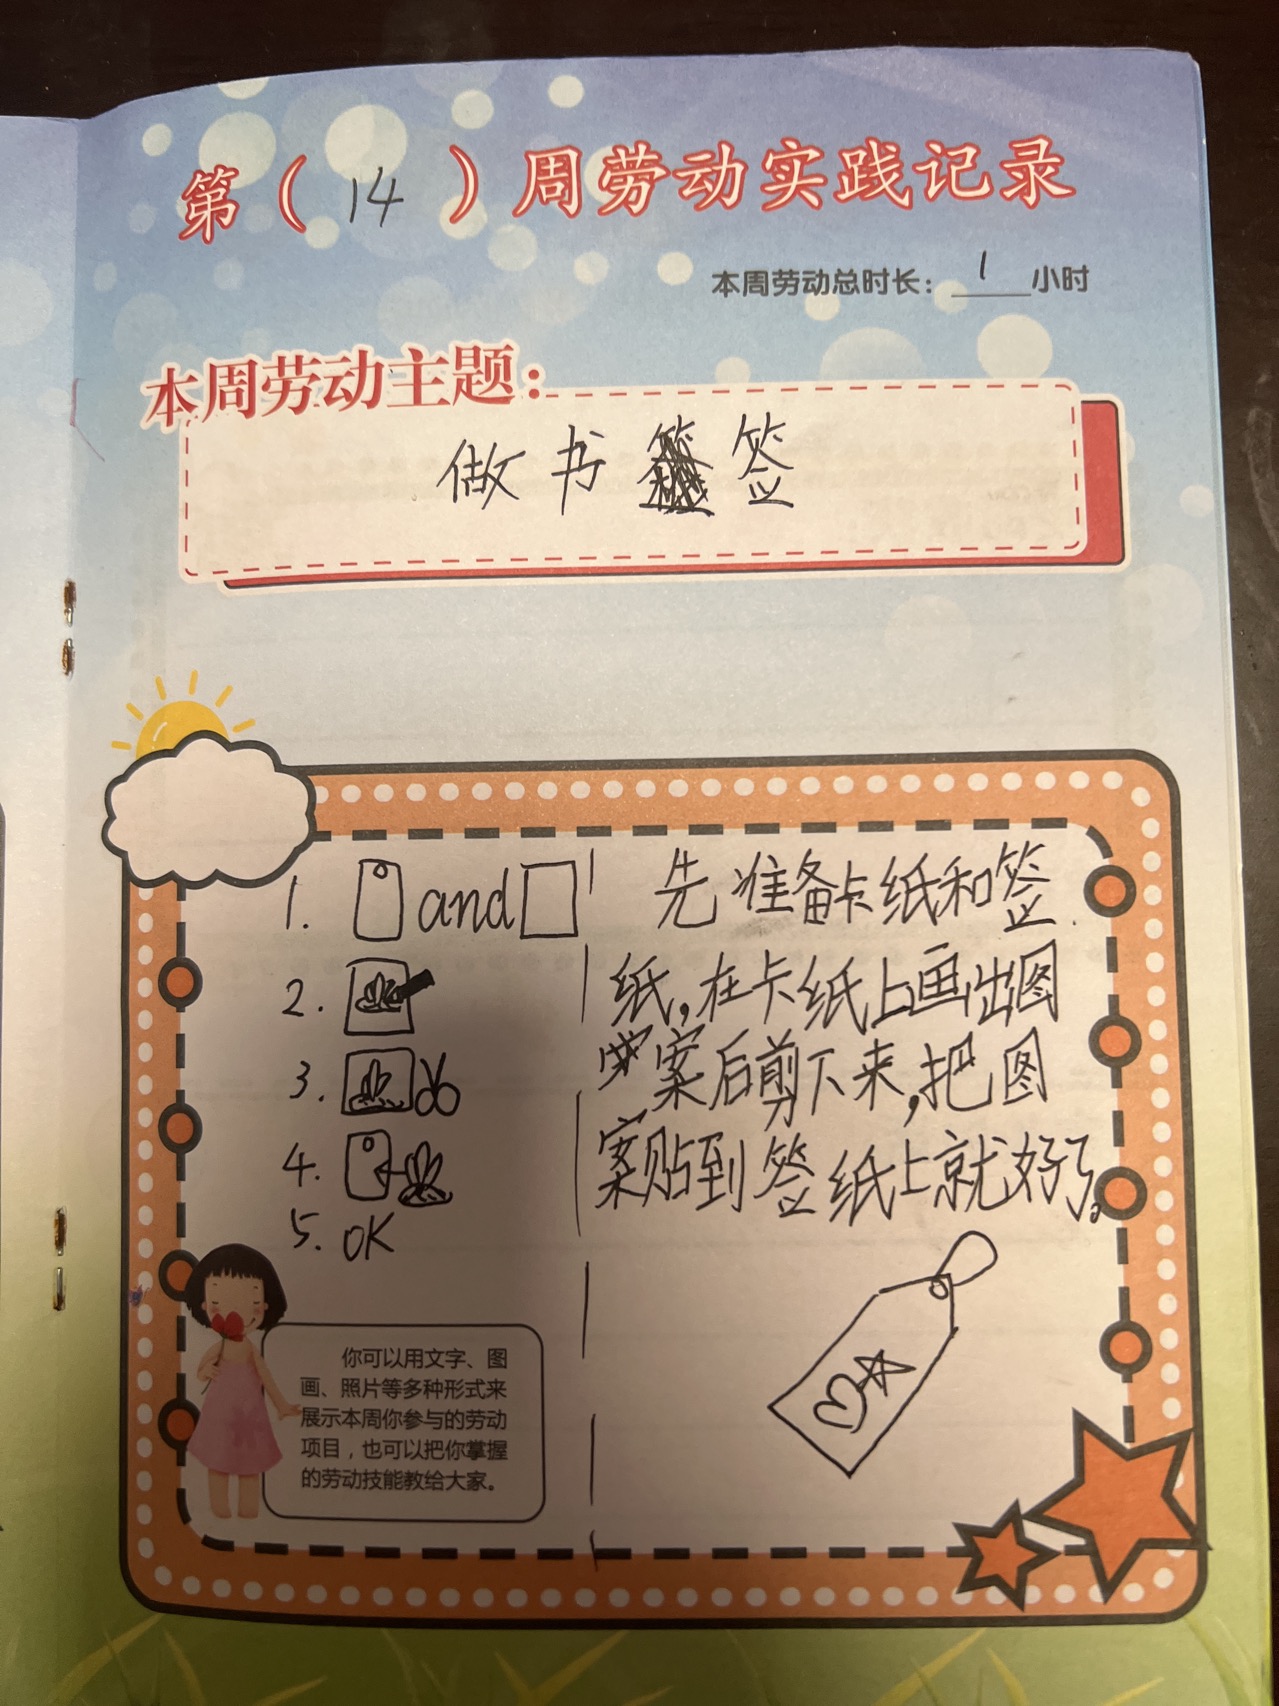 第（14）周劳动实践记录
本周劳动总时长：1小时
本周劳动主题：
做书签
1. and
2.
3.
4.
5. OK
先准备卡纸和签
纸，在卡纸上画出图
案后剪下来，把图
案贴到签纸上就好了。
你可以用文字、图
画、照片等多种形式来
展示本周你参与的劳动
项目，也可以把你掌握
的劳动技能教给大家。